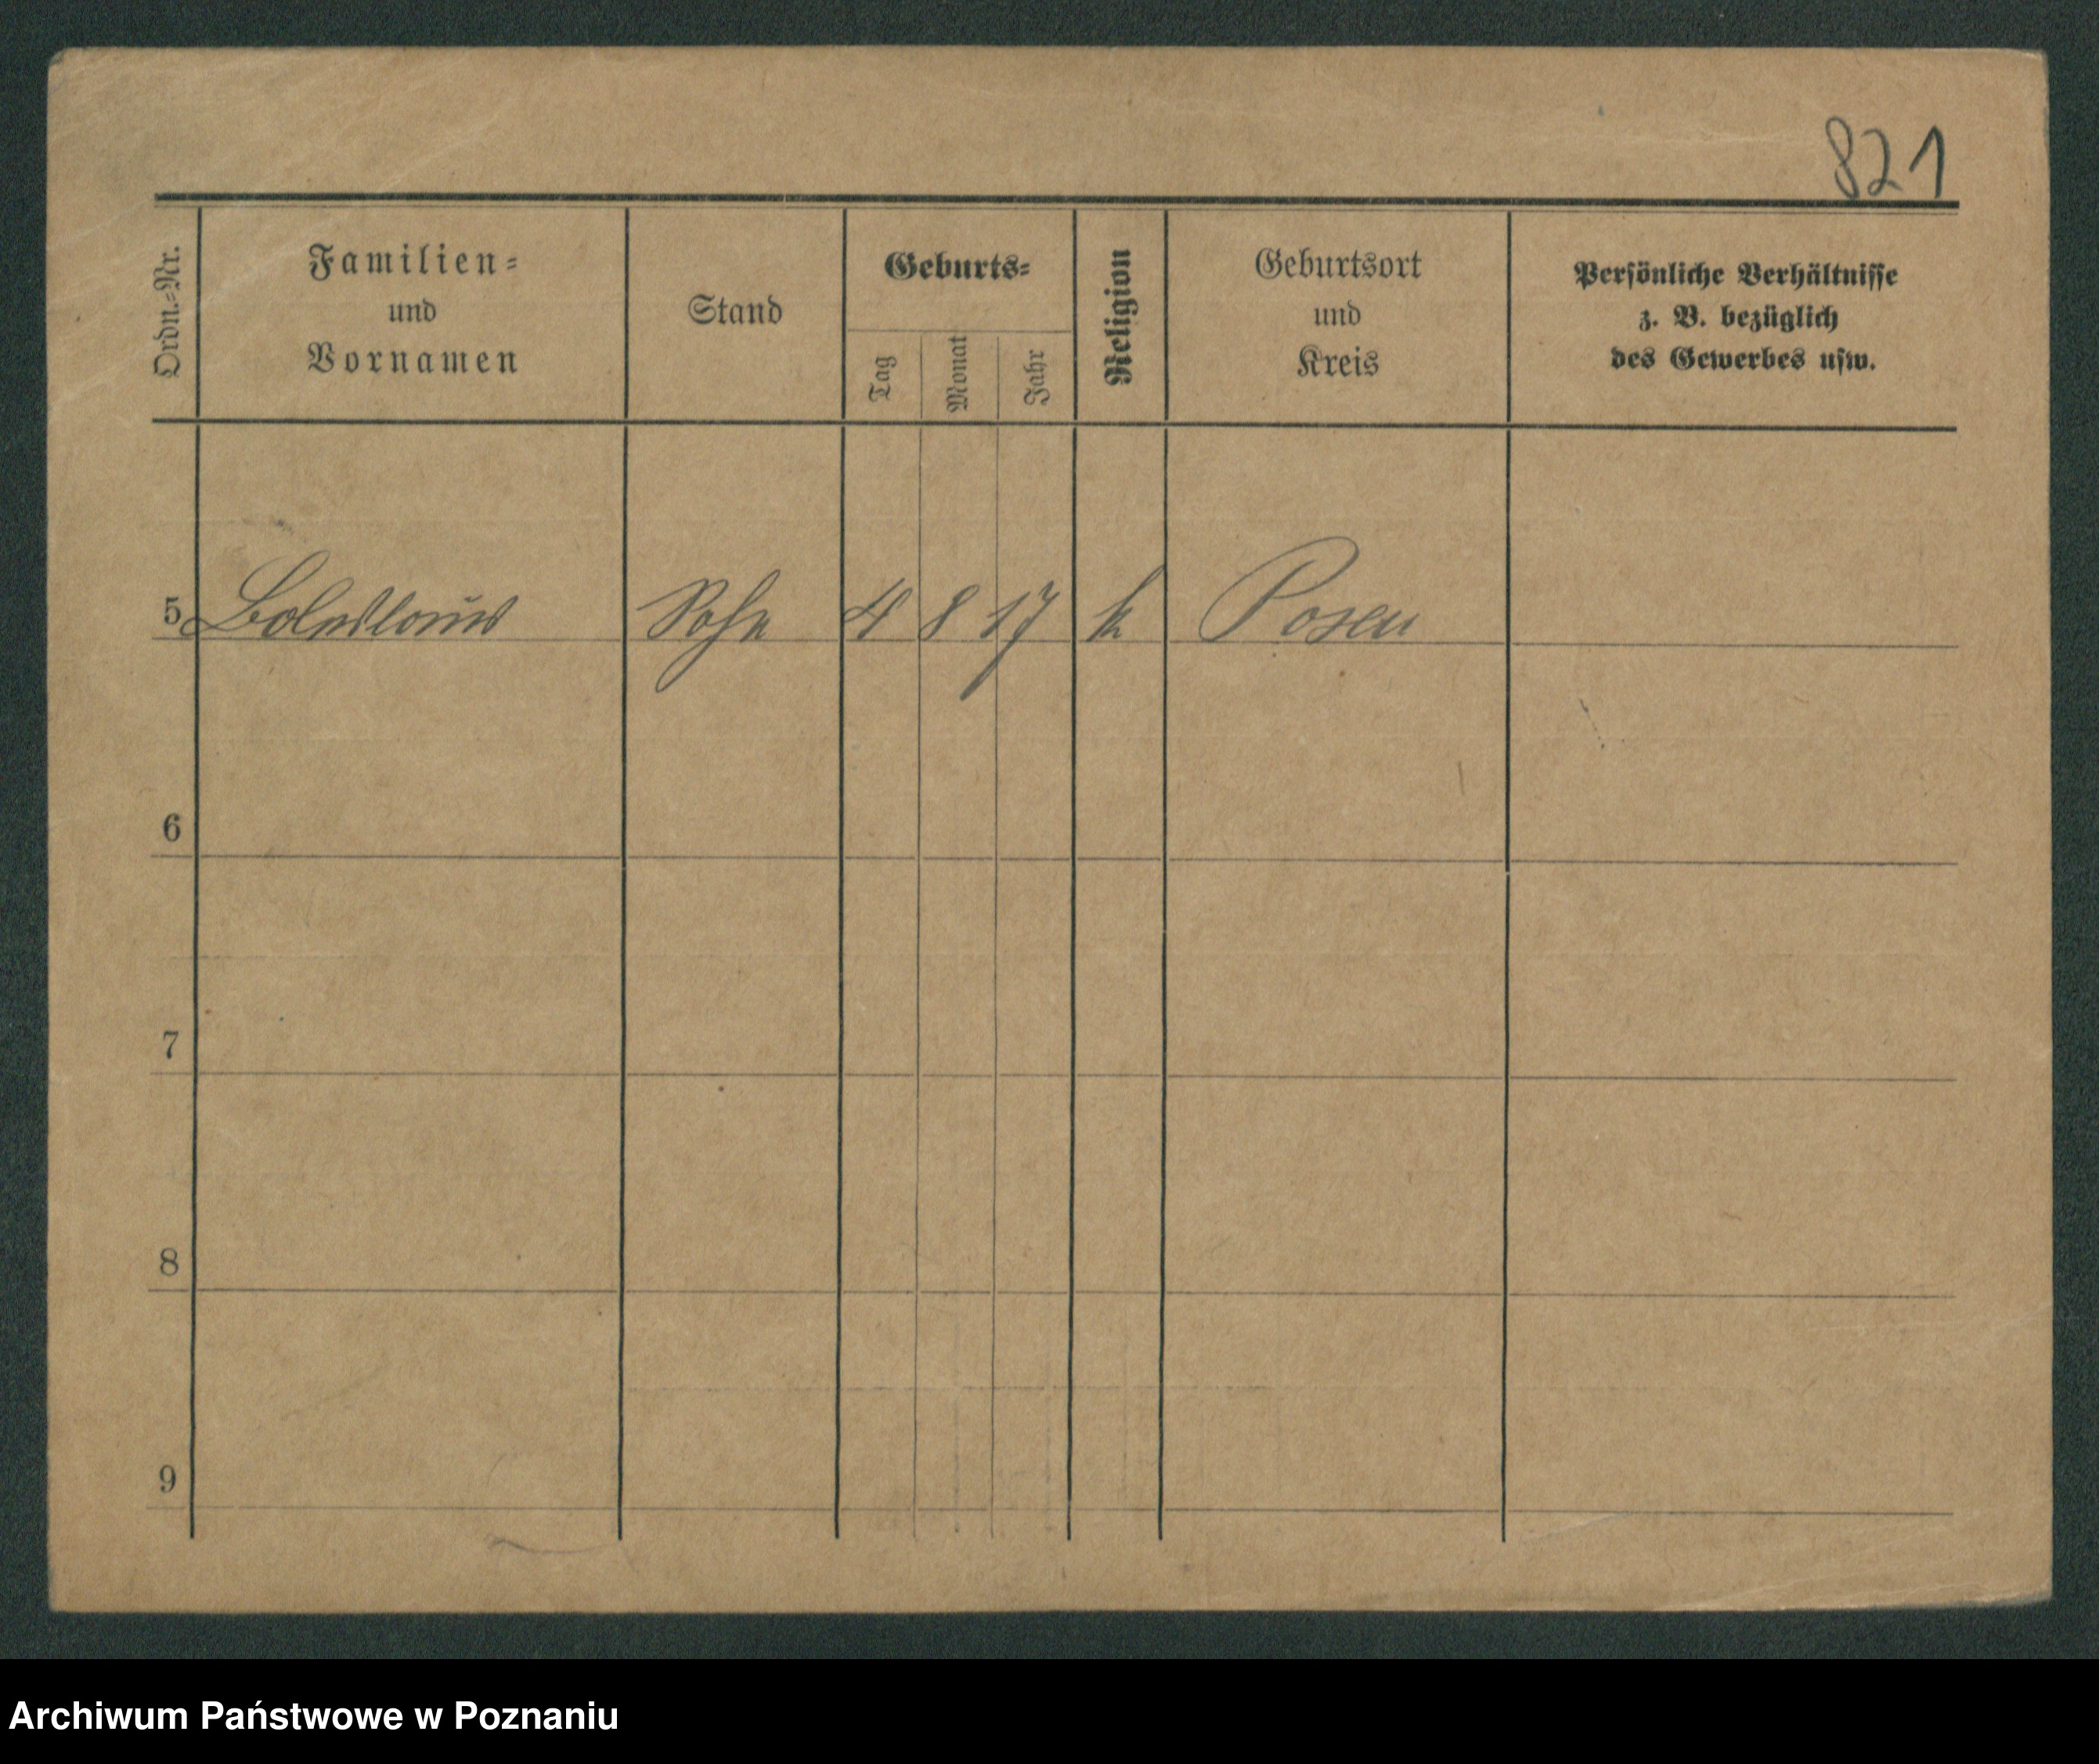 821
Ordn.-Nr.
Familien-
und
Vornamen
Stand
Geburts-
Tag
Monat
Jahr
Religion
Geburtsort
und
Kreis
Persönliche Verhältnisse
z. B. bezüglich
des Gewerbes usw.
5 Boleslaus Sohn 4 8 17 k Posen
6
7
8
9
Archiwum Państwowe w Poznaniu